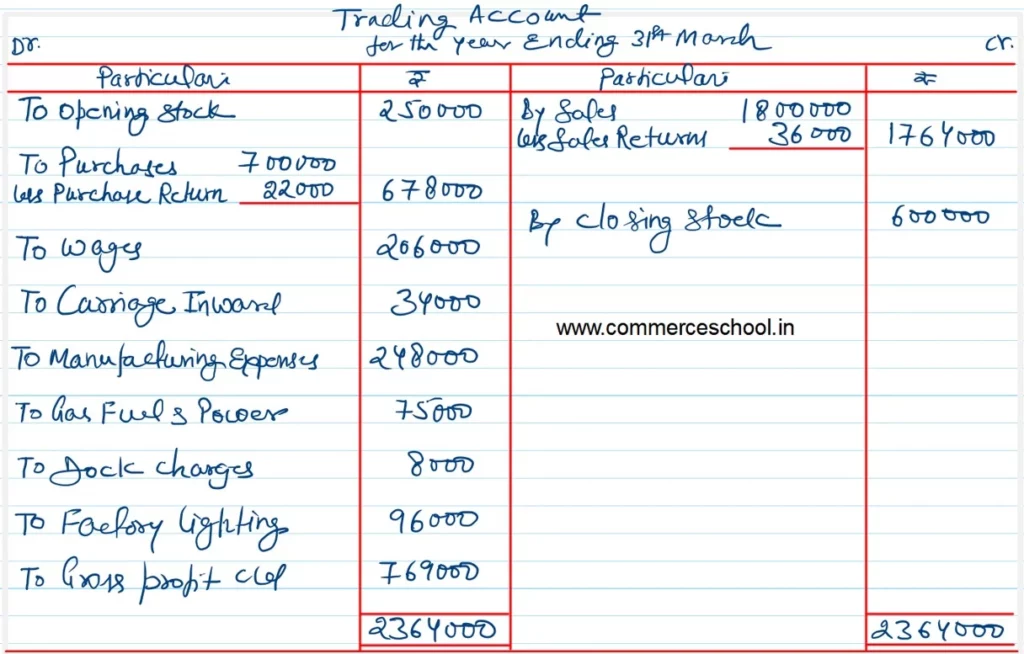 Trading Account
for the year Ending 31st March
Dr. Cr.
Particulars ₹ Particulars ₹
To Opening Stock 250000 By Sales 1800000
less Sales Returns 36000 1764000
To Purchases 700000
less Purchase Return 22000 678000
By Closing Stock 600000
To Wages 206000
To Carriage Inward 34000
www.commerceschool.in
To Manufacturing Expenses 248000
To Gas Fuel & Power 75000
To Dock Charges 8000
To Factory lighting 96000
To Gross profit c/d 769000
2364000 2364000